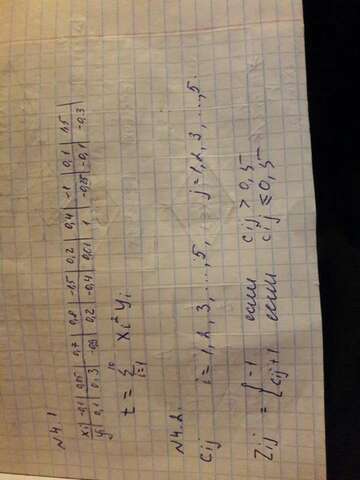 N4.1
xi -0,1 0,15 0,7 0,8 -1,5 0,2 0,4 -1 0,1 1,5
yi 0,1 0,3 0,2 -0,4 1 -0,1 -0,3
t = Σ i=1 10 xi² yi
N4.2.
Cij i=1,2,3,...,5, j=1,2,3,...,5.
Zij = { -1 если cij > 0,5
cij+1 если cij ≤ 0,5